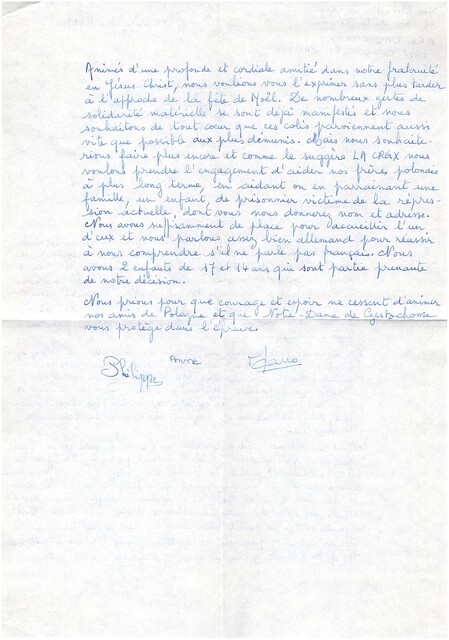 Animés d'une profonde et cordiale amitié dans notre fraternité
en Jésus-Christ, nous voulions vous l'exprimer sans plus tarder
à l'approche de la fête de Noël. De nombreux gestes de
solidarité matérielle se sont déjà manifestés et nous
souhaitons de tout cœur que ces colis parviennent aussi
vite que possible aux plus démunis. Mais nous souhaite-
rions faire plus encore et comme le suggère LA CROIX nous
voulons prendre l'engagement d'aider nos frères polonais
à plus long terme, en aidant ou en parrainant une
famille, un enfant, de prisonnier victime de la répres-
sion actuelle, dont vous nous donnerez nom et adresse.
Nous avons suffisamment de place pour accueillir l'un
d'eux et nous parlons assez bien allemand pour réussir
à nous comprendre s'il ne parle pas français. Nous
avons 2 enfants de 17 et 14 ans qui sont partie prenante
de notre décision.
Nous prions pour que courage et espoir ne cessent d'animer
nos amis de Pologne et que Notre-Dame de Czestochowa
vous protège dans l'épreuve.
Philippe Anne